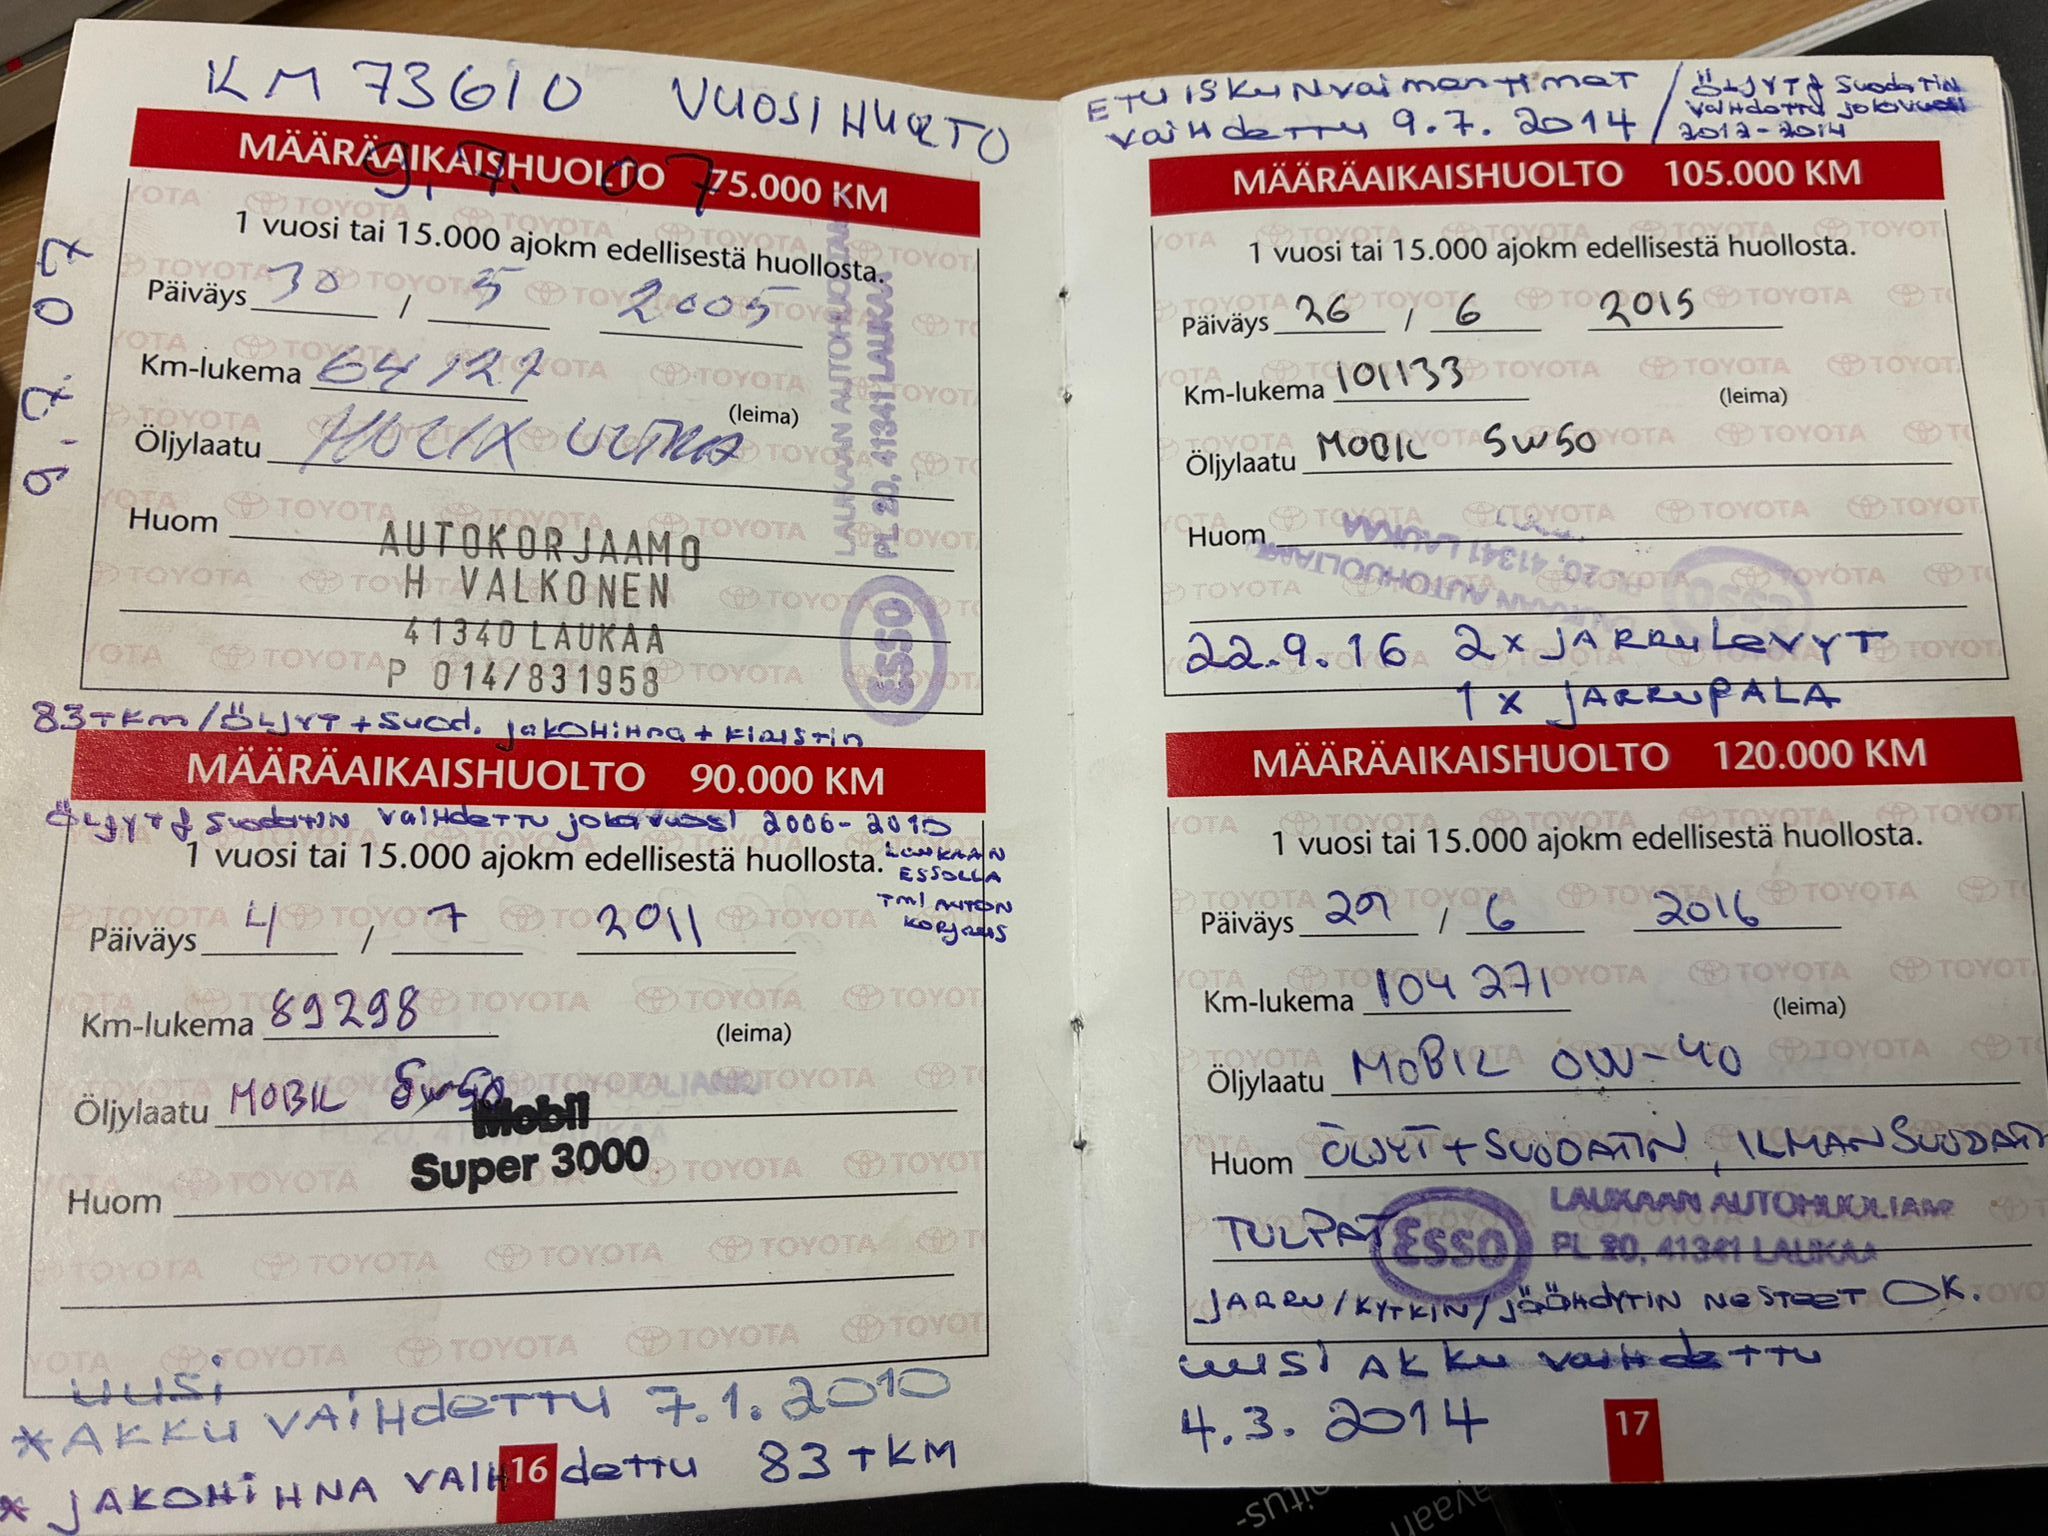 KM 73610 VUOSIHUOLTO
9.7.07
9.7.07
MÄÄRÄAIKAISHUOLTO 75.000 KM
1 vuosi tai 15.000 ajokm edellisestä huollosta.
Päiväys 30 / 5 2005
Km-lukema 64127
(leima)
Öljylaatu
Huom
AUTOKORJAAMO
H VALKONEN
41340 LAUKAA
P 014/831958
LAUKAAN AUTOHUOLTAMO
PL 20, 41341 LAUKAA
ESSO
83 TKM/ÖLJYT + SUOD. JAKOHIHNA + KIRISTIN
MÄÄRÄAIKAISHUOLTO 90.000 KM
ÖLJYT & SUODATIN VAIHDETTU JOKAVUOSI 2006-2010
LAUKAAN
ESSOLLA
TMI AUTON
KORJAUS
1 vuosi tai 15.000 ajokm edellisestä huollosta.
Päiväys 4 / 7 2011
Km-lukema 89298
(leima)
Öljylaatu MOBIL 5W50
Mobil
Super 3000
Huom
UUSI
* AKKU VAIHDETTU 7.1.2010
* JAKOHIHNA VAIHDETTU 83 TKM
16
ETU ISKUNVAIMENTIMET
VAIHDETTU 9.7.2014 /
ÖLJYT & SUODATIN
VAIHDETTU JOKAVUOSI
2012-2014
MÄÄRÄAIKAISHUOLTO 105.000 KM
1 vuosi tai 15.000 ajokm edellisestä huollosta.
Päiväys 26 / 6 2015
Km-lukema 101133
(leima)
Öljylaatu MOBIL 5W50
Huom
LAUKAAN AUTOHUOLTAMO
PL 20, 41341 LAUKAA
ESSO
22.9.16 2 x JARRULEVYT
1 x JARRUPALA
MÄÄRÄAIKAISHUOLTO 120.000 KM
1 vuosi tai 15.000 ajokm edellisestä huollosta.
Päiväys 29 / 6 2016
Km-lukema 104271
(leima)
Öljylaatu MOBIL 0W-40
Huom ÖLJYT + SUODATIN, ILMANSUODATI
TULPAT
ESSO
LAUKAAN AUTOHUOLTAMO
PL 20, 41341 LAUKAA
JARRU/KYTKIN/JÄÄHDYTIN NESTEET OK.
UUSI AKKU VAIHDETTU
4.3.2014
17